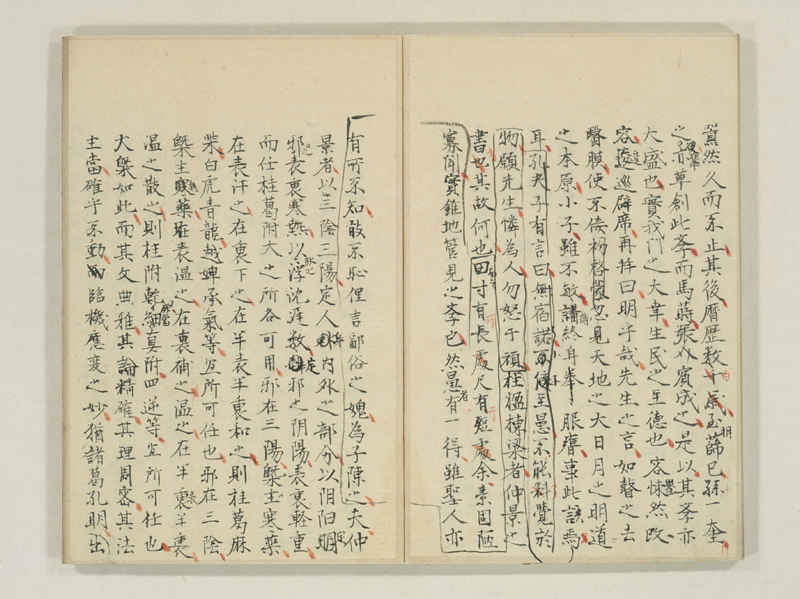 嵩然久而不止其後曆歷数千歲至薛已孫一奎
之草創此峯而馬蒔張介賓成之是以其峯亦
大盛也實我門之大幸生民之至德也客悚然改
容逡巡辟席再拜曰明乎哉先生之言如瞽之去
瞖膜使不侫初啓蒙忽見天地之大日月之明道
之本原小子雖不敏請終身拳ゝ服膺事此語焉
耳孔夫子有言曰無宿諾至愚不能料覺於
物願先生憐為人勿怒于頑桎楹棟梁者仲景之
書也其故何也曰寸有長處尺有短處余素固陋
寡聞實錐地管見之峯已然愚有一得雖聖人亦
有所不知敢不恥俚言鄙俗之媿為子陳之夫仲
景者以三陰三陽定人内外之部分以阴阳明
邪表裏寒熱以浮沈遅数定邪之阴陽表裏軽重
而任桂葛附大之所各可用邪在三陽槩主寒藥
在表汗之在裏下之在半表半裏和之則柱葛麻
柴白虎青龍越婢承氣等宜所可任也邪在三陰
槩主藥在表温之在裏補之温之在半裏半表
温之散之則桂附乾真附四逆等宜所可任也
大槩如此而其文典雅其論精確其理周密其法
主當確乎不動而臨機應変之妙猶諸葛孔明出